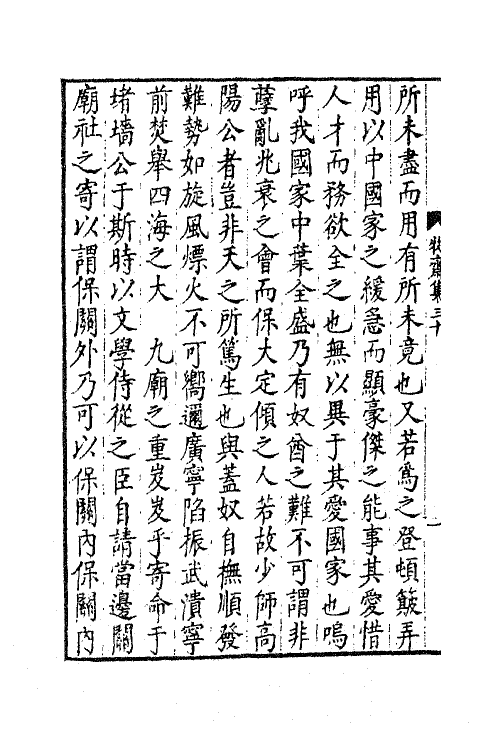 牧齋集三十
一
所未盡而用有所未竟也又若爲之登頓簸弄
用以中國家之緩急而顯豪傑之能事其愛惜
人才而務欲全之也無以異于其愛國家也嗚
呼我國家中葉全盛乃有奴酋之難不可謂非
孽亂兆衰之會而保大定傾之人若故少師高
陽公者豈非天之所篤生也與蓋奴自撫順發
難勢如旋風熛火不可嚮邇廣寧陷振武潰寧
前焚舉四海之大　九廟之重岌岌乎寄命于
堵墻公于斯時以文學侍從之臣自請當邊關
廟社之寄以謂保關外乃可以保關內保關內